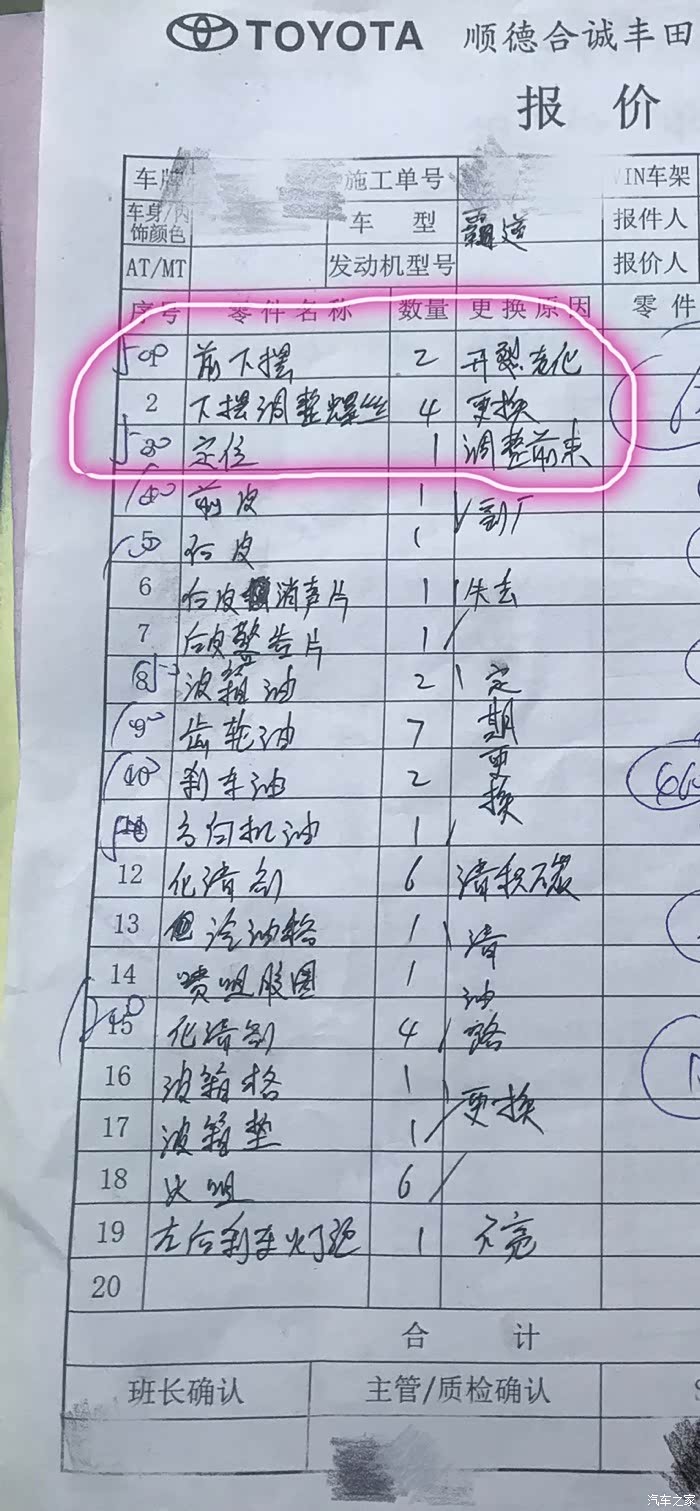 TOYOTA 顺德合诚丰田
报 价
车牌 施工单号 VIN车架
车身/内饰颜色 车 型 霸道 报件人
AT/MT 发动机型号 报价人
序号 零件名称 数量 更换原因 零件
前下摆 2 开裂老化
2 下摆调整螺丝 4 更换
3 定位 1 调整前束
4 前皮 1 到厂
5 后皮 1
6 后皮消声片 1 失去
7 后皮警告片 1
8 波箱油 2 定期更换
9 齿轮油 7
10 刹车油 2
方向机油 1
12 化清剂 6 清积碳
13 冷油格 1 清油路
14 喷咀胶圈 1
15 化清剂 4
16 波箱格 1 更换
17 波箱垫 1
18 火咀 6
19 左后刹车灯泡 1 不亮
20
合 计
班长确认 主管/质检确认
汽车之家